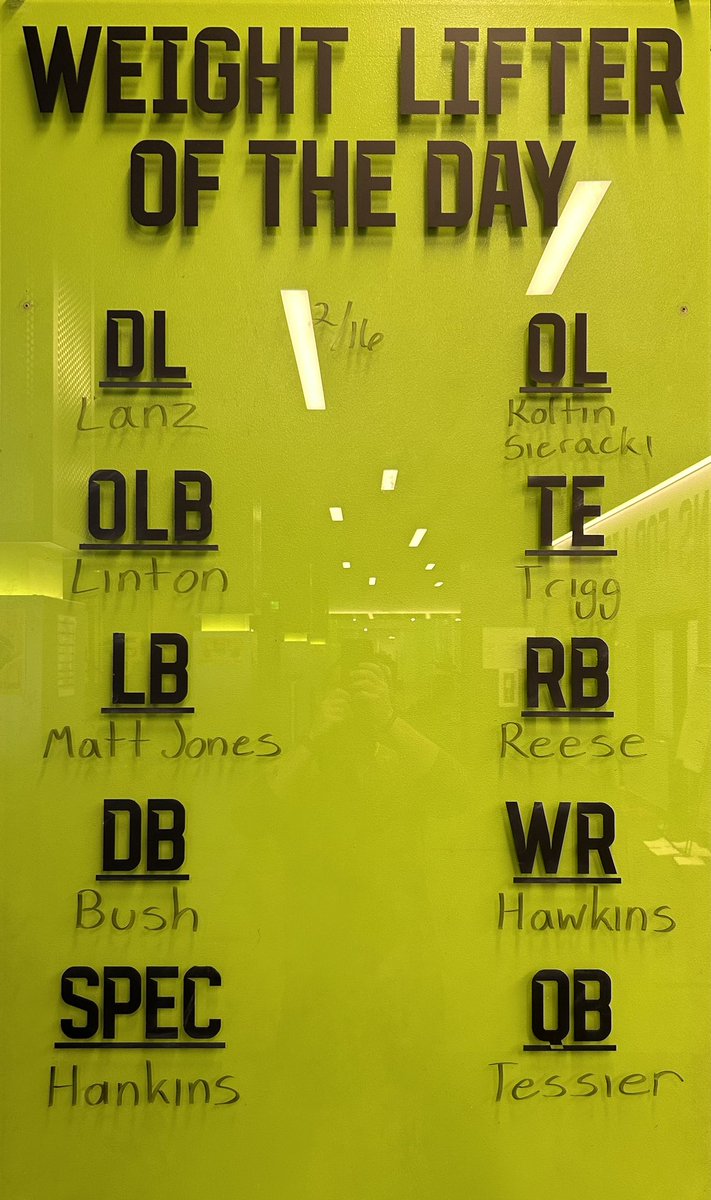 WEIGHT LIFTER
OF THE DAY
2/16
DL
Lanz
OLB
Linton
LB
Matt Jones
DB
Bush
SPEC
Hankins
OL
Koltin
Sieracki
TE
Trigg
RB
Reese
WR
Hawkins
QB
Tessier